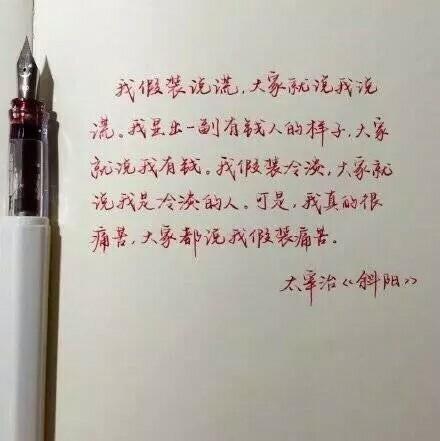 我假装说谎，大家就说我说
谎。我显出一副有钱人的样子，大家
就说我有钱。我假装冷淡，大家就
说我是冷淡的人。可是，我真的很
痛苦，大家都说我假装痛苦。
太宰治《斜阳》